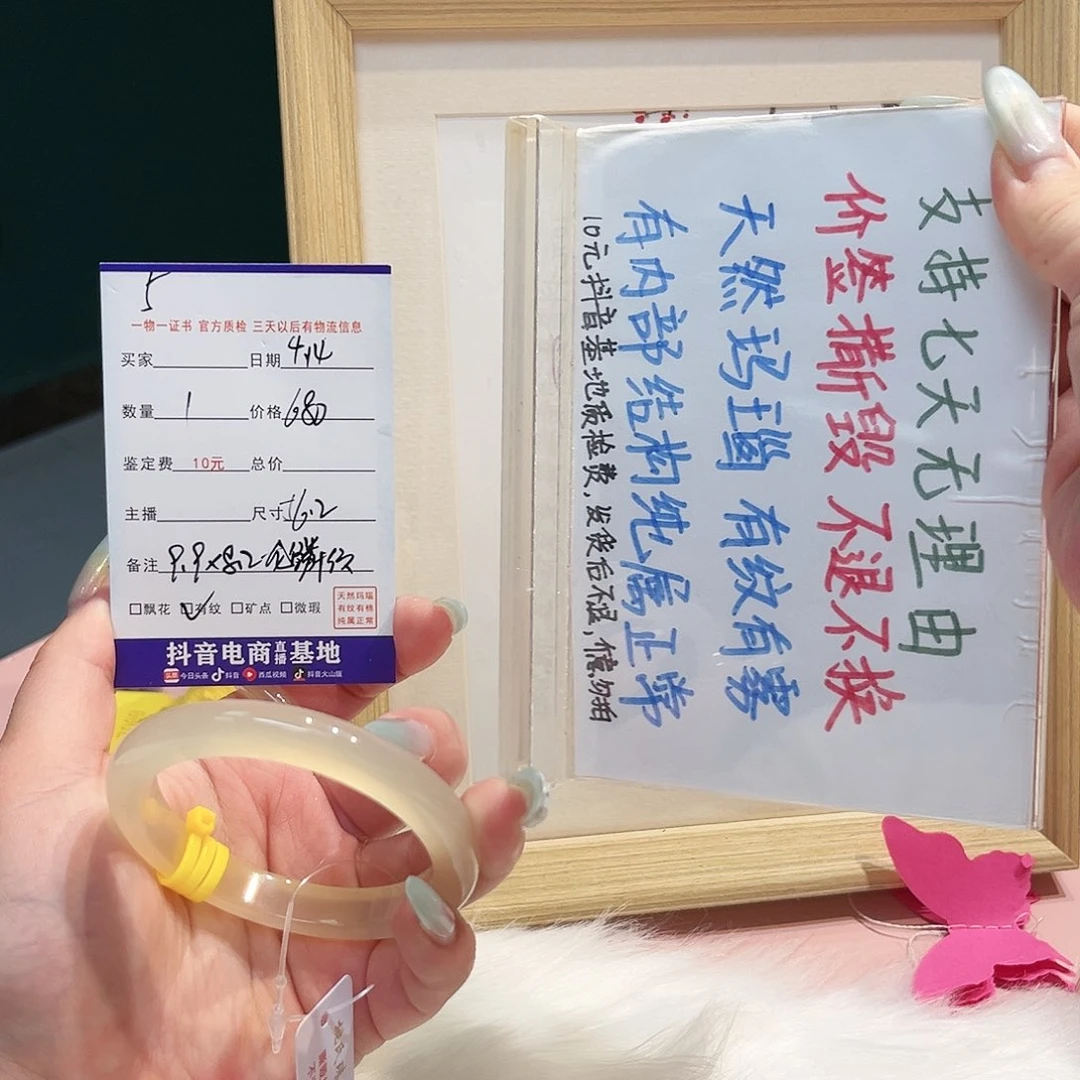 5
一物一证书 官方质检 三天以后有物流信息
买家 日期 4,14
数量 1 价格 680
鉴定费 10元 总价
主播 尺寸 56.2
备注 9.9×8.2 金鳞纹
□飘花 ☑有纹 □矿点 □微瑕
天然玛瑙
有纹有棉
纯属正常
抖音电商直播基地
头条 今日头条 抖音 西瓜视频 抖音火山版
支持七天无理由
价签撕毁 不退不换
天然玛瑙 有纹有雾
有内部结构纯属正常
10元抖音基地质检费,发货后不退,慎勿拍